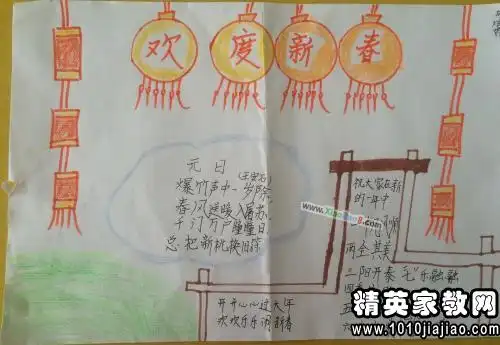 欢度新春
元日
(王安石)
爆竹声中一岁除,
春风送暖入屠苏.
千门万户曈曈日
总把新桃换旧符
祝大家在新
的一年中
一帆风顺
两全其美
三阳开泰 乐融融
开开心心过大年
欢欢乐乐闹新春
精英家教网
www.1010jiajiao.com